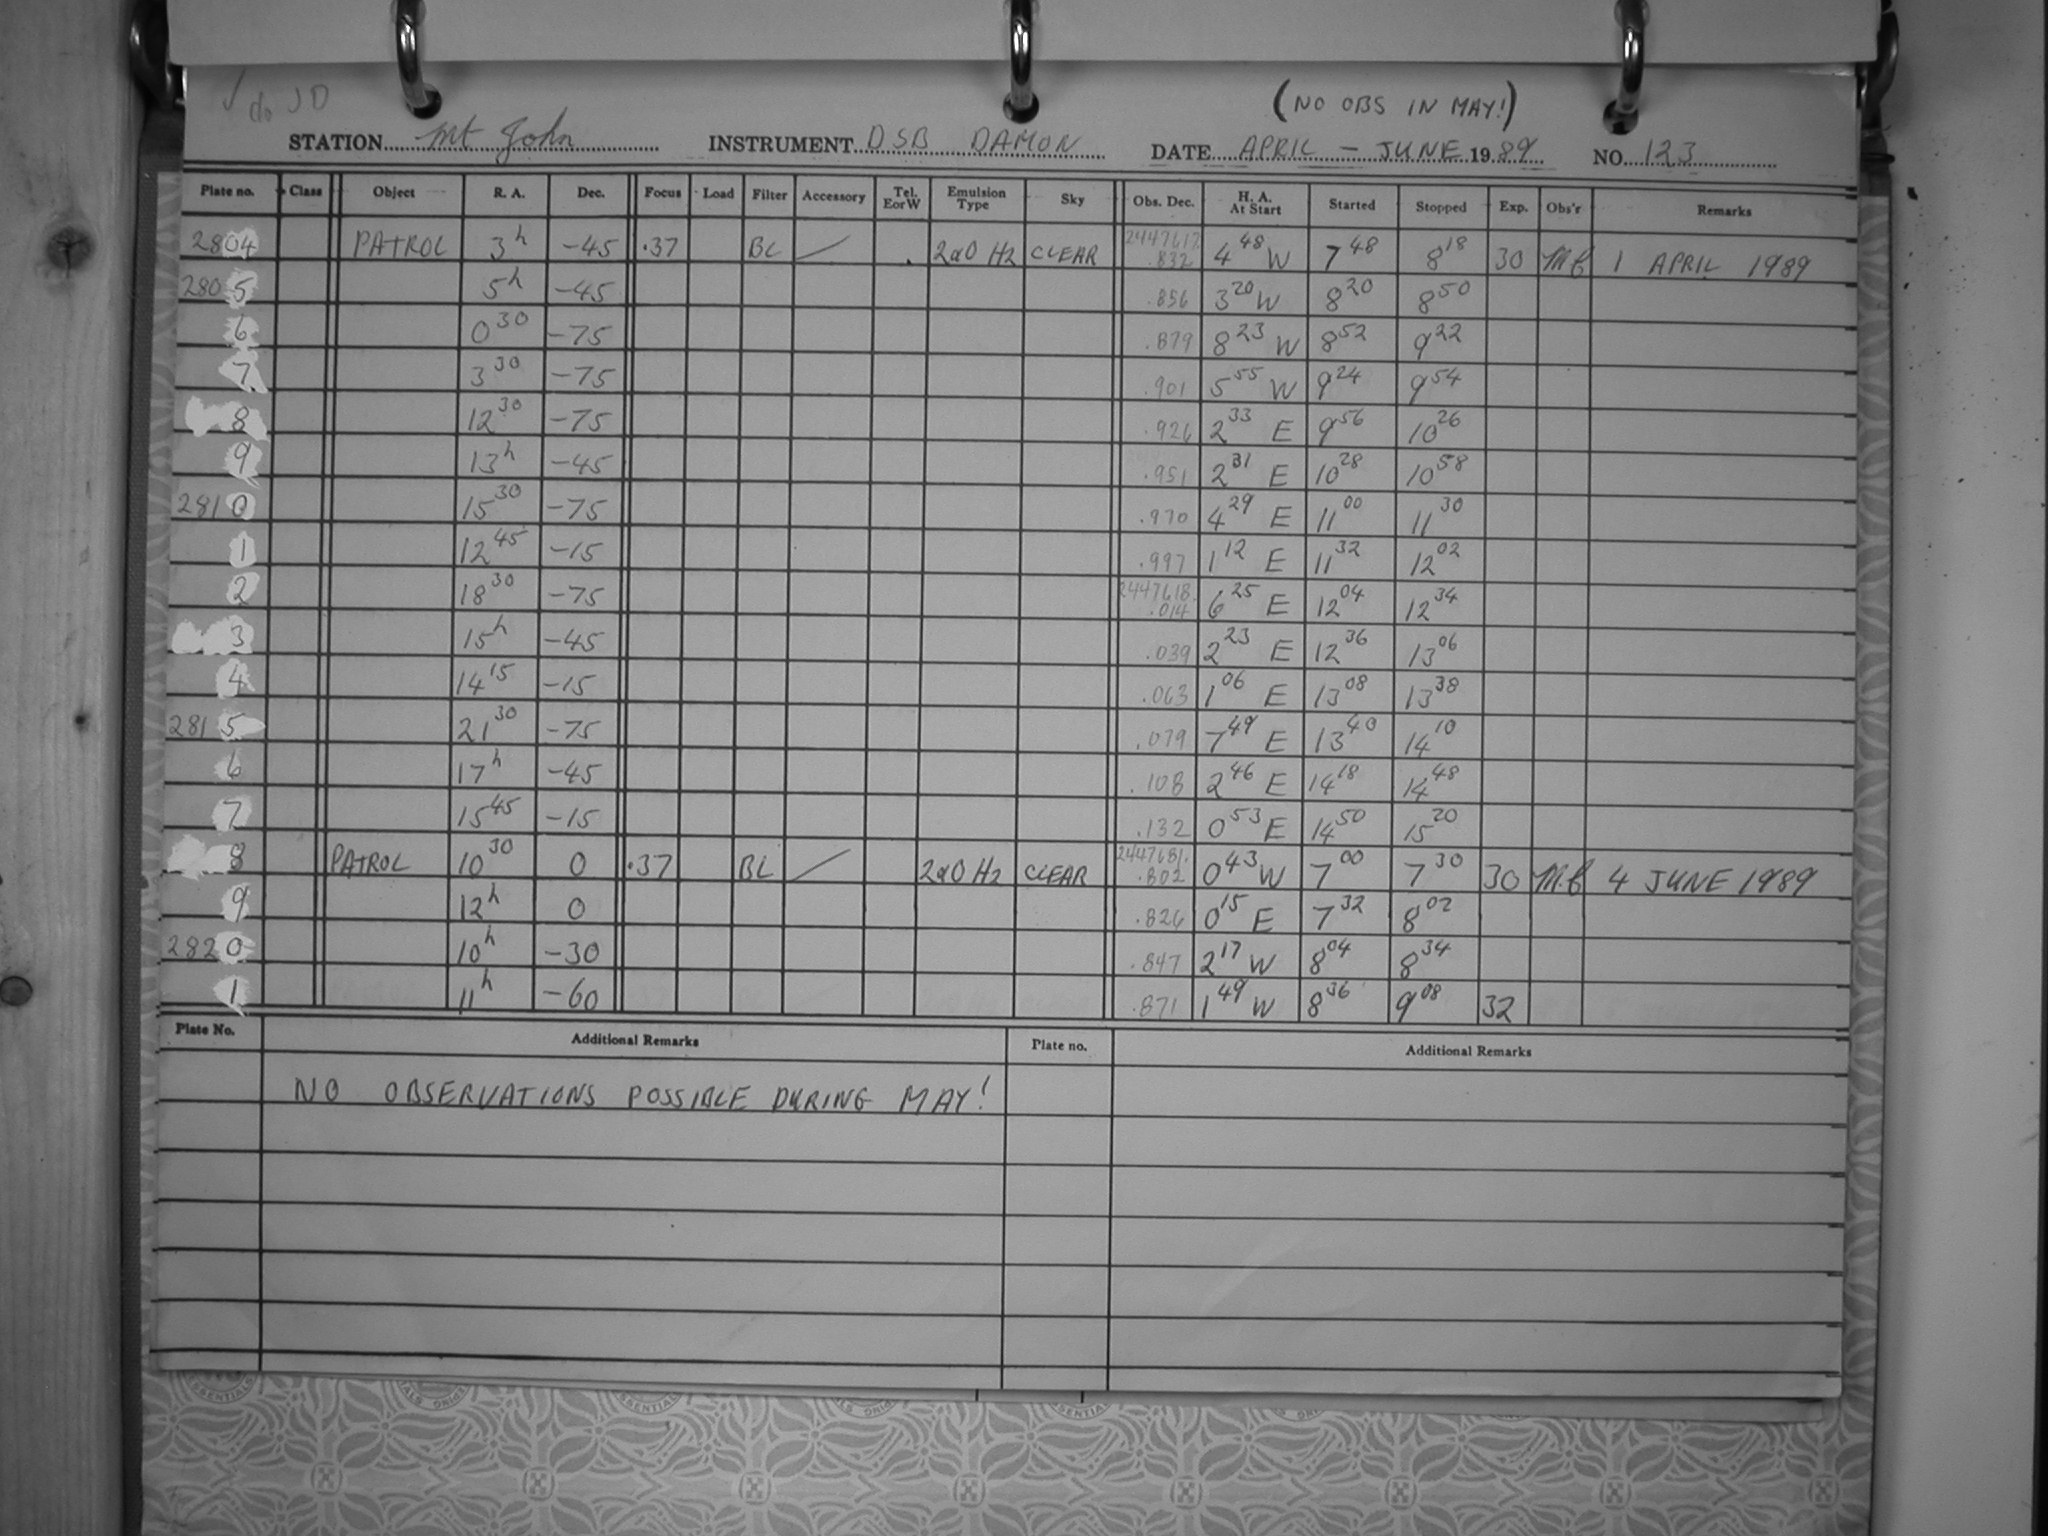 ✓ do JD
(NO OBS IN MAY!)
STATION Mt John INSTRUMENT DSB DAMON DATE APRIL – JUNE 1989 NO. 123
Plate no. Class Object R. A. Dec. Focus Load Filter Accessory Tel. E or W Emulsion Type Sky Obs. Dec. H. A. At Start Started Stopped Exp. Obs'r Remarks
2804 PATROL 3h -45 .37 BL / 2aO H2 CLEAR 2447617.832 4 48 W 7 48 8 18 30 MC 1 APRIL 1989
2805 5h -45 .856 3 20 W 8 20 8 50
6 0 30 -75 .879 8 23 W 8 52 9 22
7 3 30 -75 .901 5 55 W 9 24 9 54
8 12 30 -75 .926 2 33 E 9 56 10 26
9 13h -45 .951 2 31 E 10 28 10 58
2810 15 30 -75 .970 4 29 E 11 00 11 30
1 12 45 -15 .997 1 12 E 11 32 12 02
2 18 30 -75 2447618.014 6 25 E 12 04 12 34
3 15h -45 .039 2 23 E 12 36 13 06
4 14 15 -15 .063 1 06 E 13 08 13 38
2815 21 30 -75 .079 7 49 E 13 40 14 10
6 17h -45 .108 2 46 E 14 18 14 48
7 15 45 -15 .132 0 53 E 14 50 15 20
8 PATROL 10 30 0 .37 BL / 2aO H2 CLEAR 2447681.802 0 43 W 7 00 7 30 30 MC 4 JUNE 1989
9 12h 0 .826 0 15 E 7 32 8 02
2820 10h -30 .847 2 17 W 8 04 8 34
1 11h -60 .871 1 49 W 8 36 9 08 32
Plate No. Additional Remarks Plate no. Additional Remarks
NO OBSERVATIONS POSSIBLE DURING MAY!